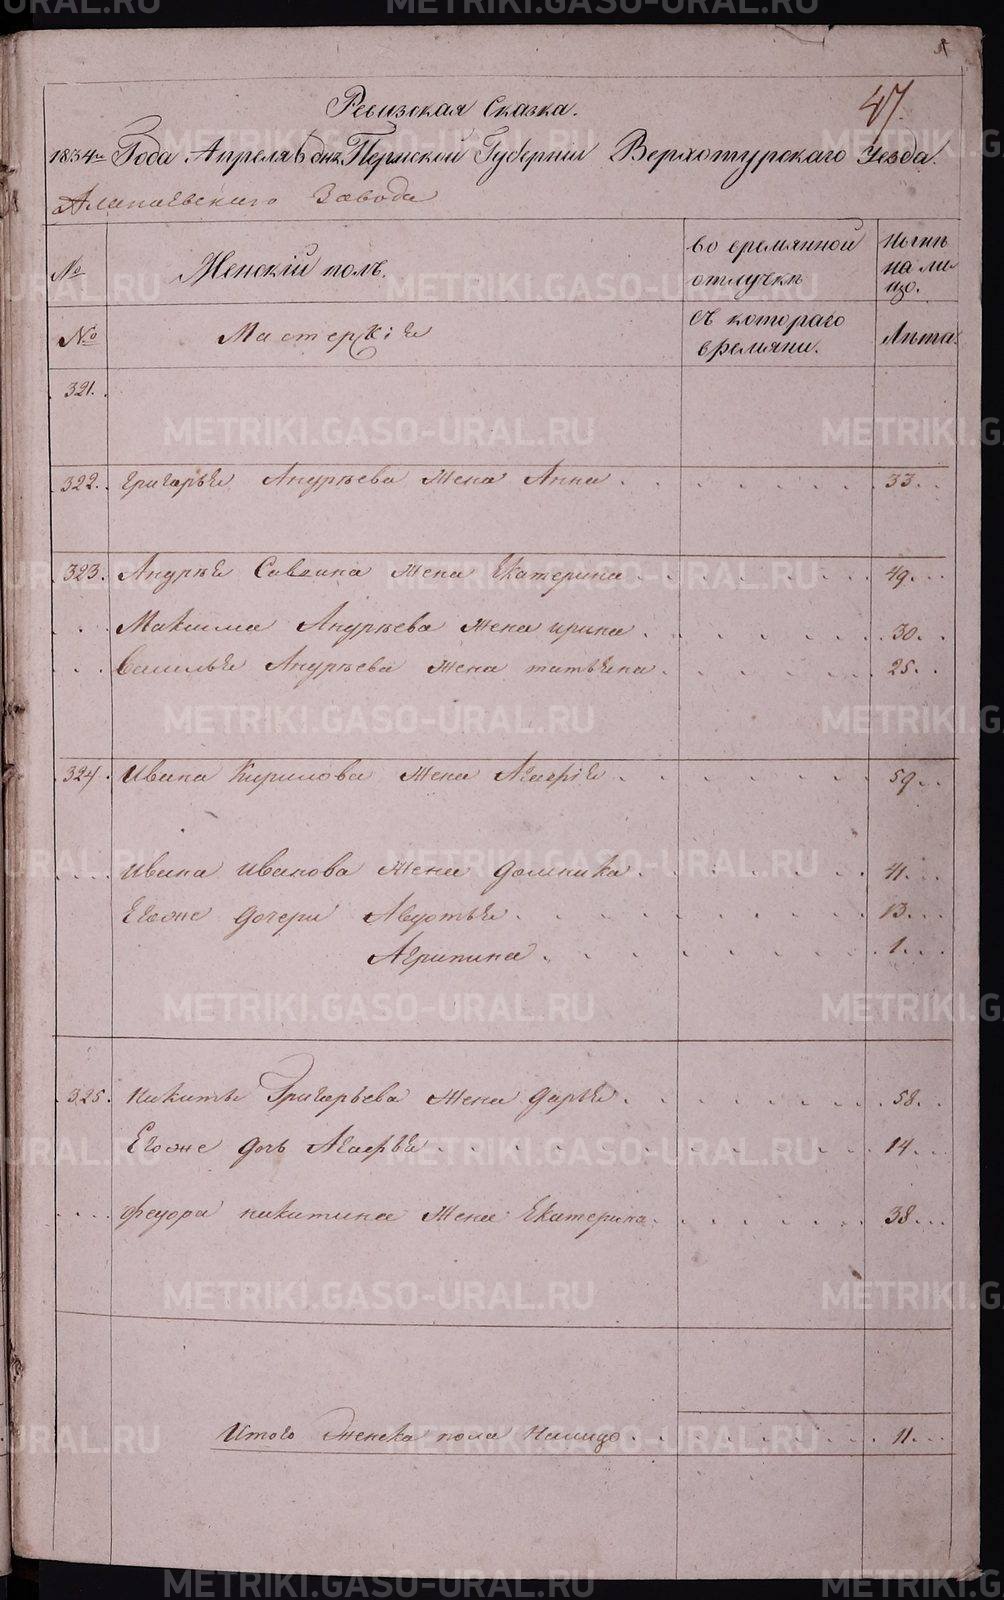 47
Ревизская Сказка.
1834го Года Апреля дня Пермской Губернии Верхотурскаго Уезда.
Алапаевскаго Завода
№ Женскій полъ. во времянной отлучкѣ Нынѣ на лицо.
№ Мастерскіе съ котораго времяни. Лѣта.
321.
322. Григорья Андрѣева жена Анна 33
323. Андрѣя Савина жена Екатерина 49
Максима Андрѣева жена ирина 30
Василья Андрѣева жена татьяна 25
324. Ивана Кирилова жена Агафія 59
Ивана Иванова жена домника 41
Егоже дочери Авдотья 13
Агрипина 1
325. Никиты Григорьева жена дарья 58
Егоже дочь Агафья 14
Федора никитина жена Екатерина 38
Итого женска пола налицо 11
METRIKI.GASO-URAL.RU